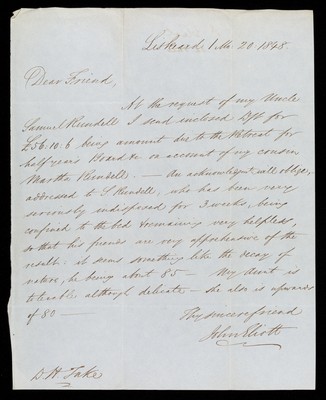 Liskeard 1 Mo. 20 1848.
Dear Friend,
At the request of my Uncle
Samuel Rundell I send inclosed Dft for
£56.10.6 being amount due to the Retreat for
half years Board &c on account of my cousin
Martha Rundell. — An acknowledgmt. will oblige,
addressed to S Rundell, who has been very
seriously indisposed for 3 weeks, being
confined to the bed & remaining very helpless,
so that his friends are very apprehensive of the
result: it seems something like the decay of
nature, he being about 85 — My Aunt is
tolerable although delicate — she also is upwards
of 80 —
Thy sincere friend
John Eliott
D H Tuke